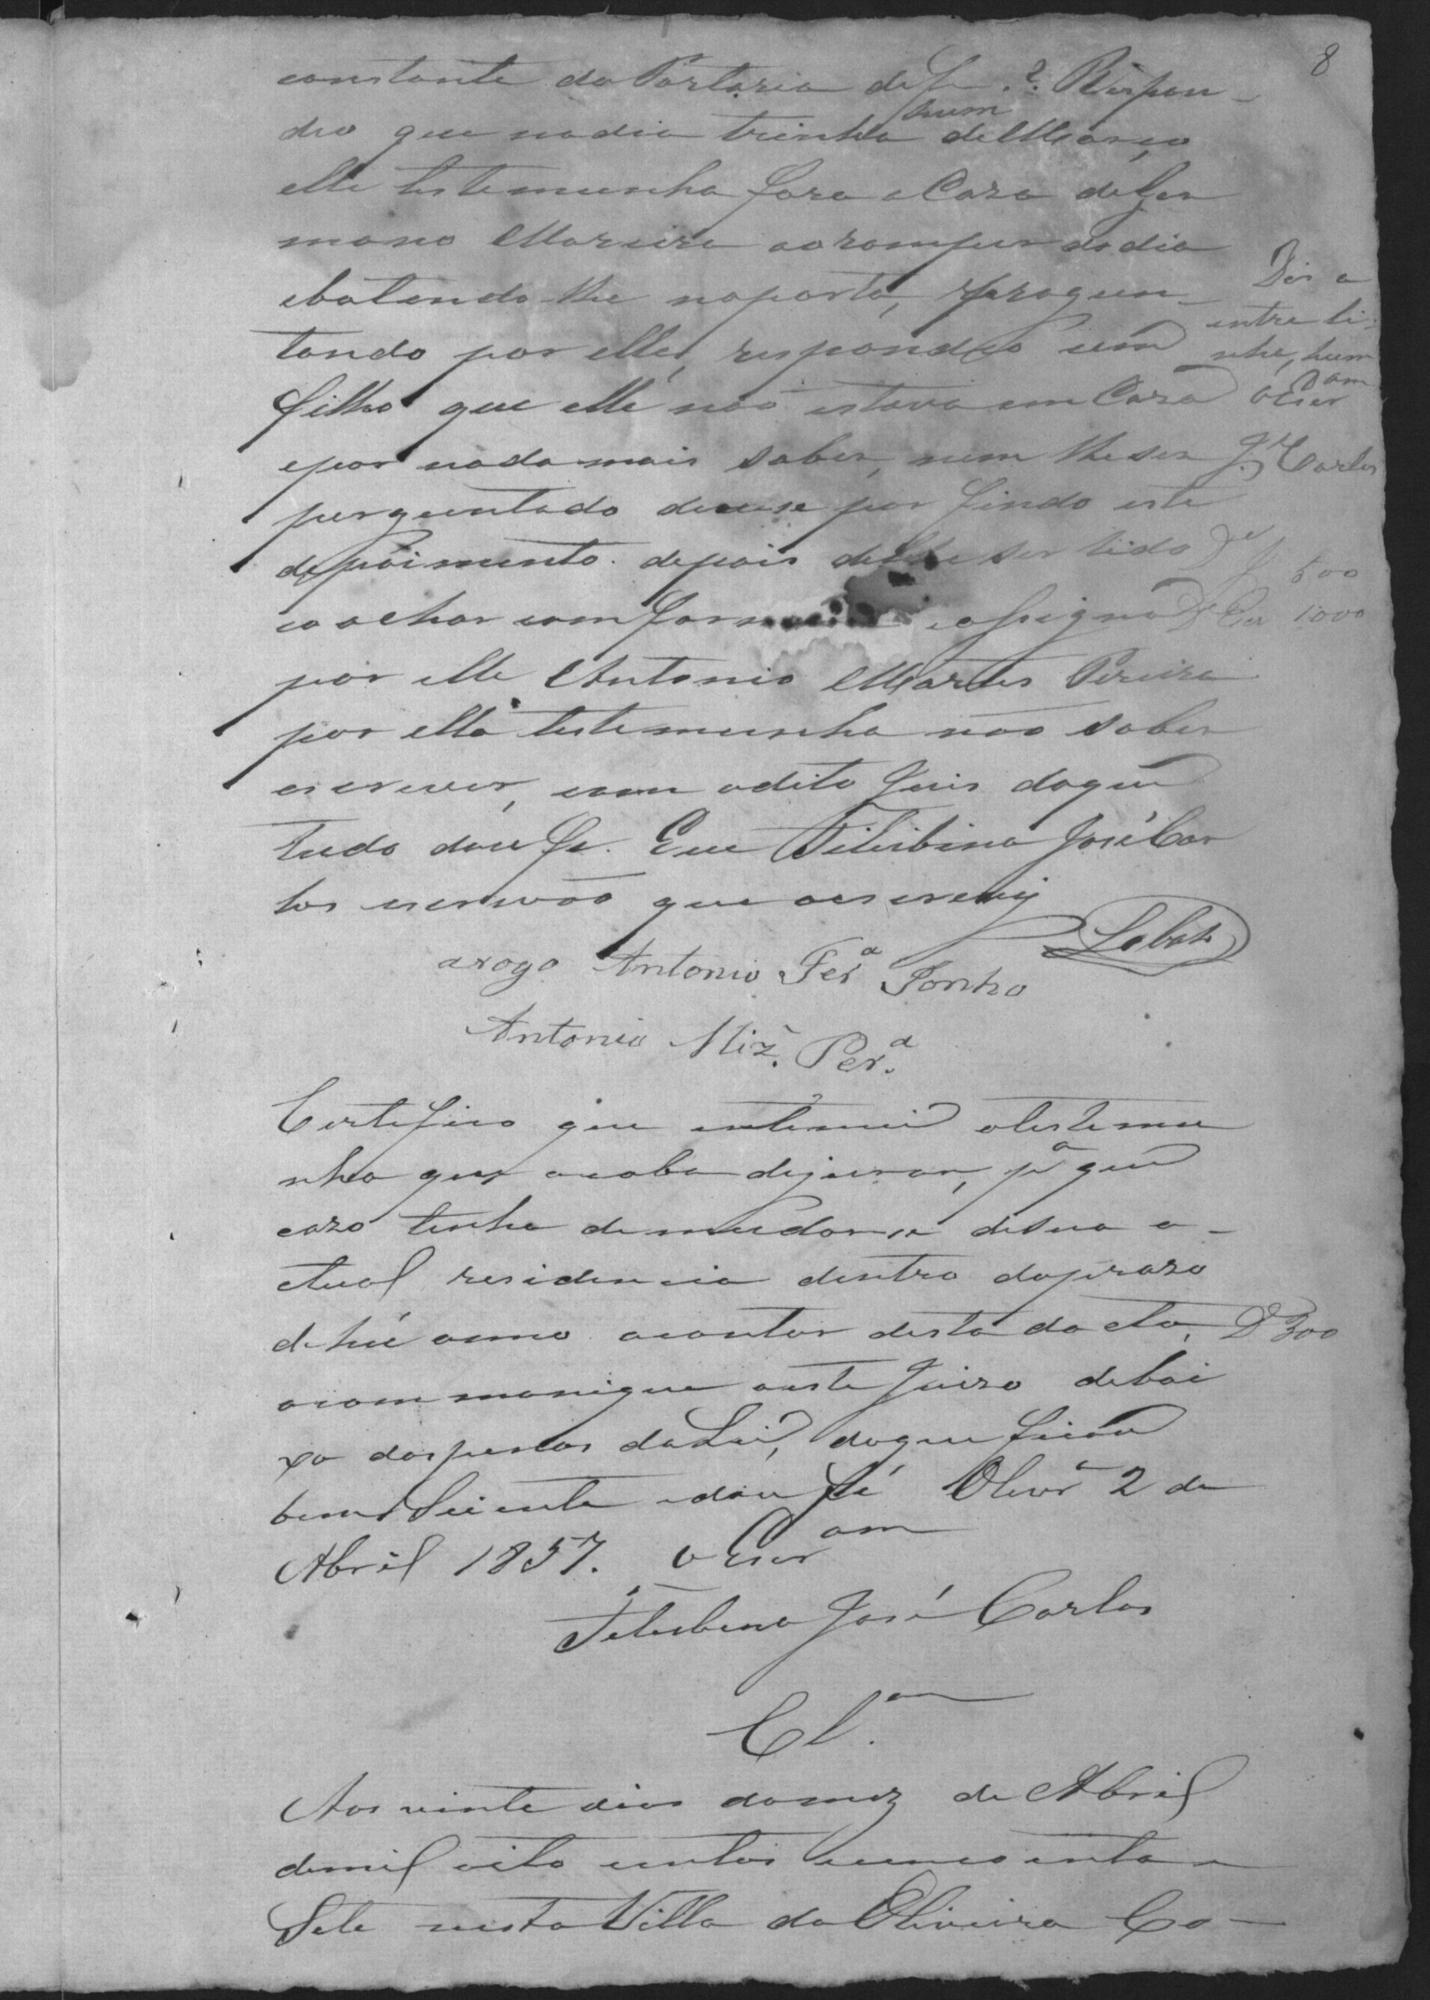 8
constante da Portaria de f. 2. Respon-
deo que no dia trinta hum de Março
elle testemunha fora a Caza de Ger
mano Moreira ao romper do dia
e batendo lhe na porta, e pregun-
tando por elle, respondeo um
filho que elle não estava em Caza
e por nada mais saber, nem lhe ser
perguntado deuse por findo este
depoimento. depois de lhe ser lido
eo achar comforme e assigna
por elle Antonio Martins Pereira
por elle testemunha não saber
escrever, com o dito Juis do que
tudo dou fé. Eu Tiburbino José Car
los escrivão que o escrevy
Lobato
a rogo Antonio Fer.ª
Antonio Miz. Per.ª
Certifico que intimei a testemu
nha que acaba de jurar, pª que
cazo tenha de mudarse de sua a-
ctual residencia dentro do prazo
de hú anno a contar desta dacta,
o communique a este Juizo debai
xo das penas da Lei, do que ficou
bem Sciente e dou fé Olivrª 2 de
Abril 1857. O Escram
José Carlos
Cl.am
Aos vinte dias do mez de Abril
de mil oito centos cincoenta e
Sete nesta Villa da Oliveira Co-
Diz a
entre li-
nha, hum
O Escram
J. Carlos
500
1000
D 300